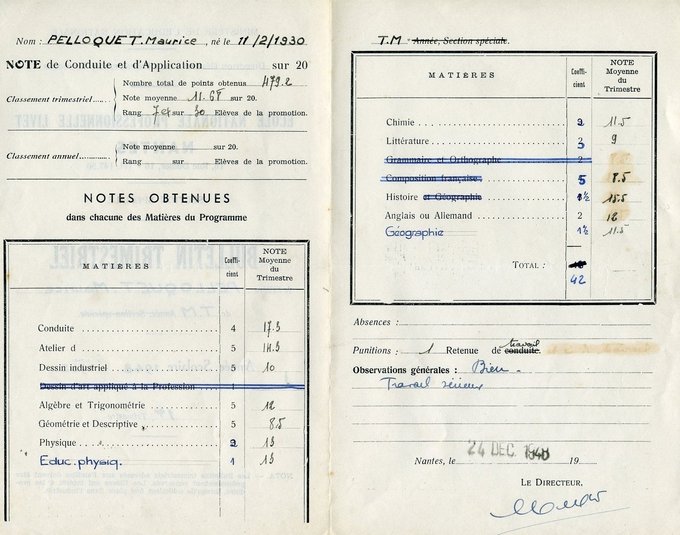 Nom : PELLOQUET. Maurice, né le 11/2/1930
NOTE de Conduite et d'Application sur 20
Classement trimestriel
Nombre total de points obtenus 479.2
Note moyenne 11.68 sur 20.
Rang 7e sur 30 Elèves de la promotion.
Classement annuel
Note moyenne sur 20.
Rang sur Elèves de la promotion.
NOTES OBTENUES
dans chacune des Matières du Programme
MATIERES Coefficient NOTE Moyenne du Trimestre
Conduite 4 17.5
Atelier d 5 14.5
Dessin industriel 5 10
Dessin d'art appliqué à la Profession 1
Algèbre et Trigonométrie 5 12
Géométrie et Descriptive 5 8.5
Physique 2 13
Educ. physiq. 1 13
T.M Année, Section spéciale.
MATIERES Coefficient NOTE Moyenne du Trimestre
Chimie 2 11.5
Littérature 3 9
Grammaire et Orthographe 2
Composition française 5 8.5
Histoire et Géographie 1½ 15.5
Anglais ou Allemand 2
Géographie 1½ 11.5
TOTAL :
42
Absences :
Punitions : 1 Retenue de conduite. travail
Observations générales : Bien.
Travail sérieux
Nantes, le 24 DEC. 1948 19
LE DIRECTEUR,